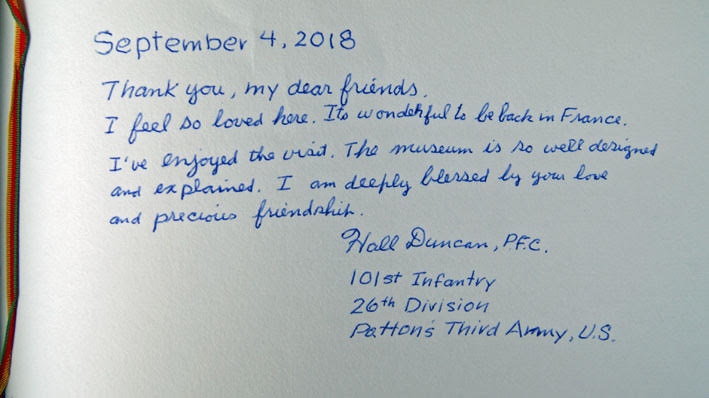 September 4, 2018
Thank you, my dear friends.
I feel so loved here. Its wonderful to be back in France.
I've enjoyed the visit. The museum is so well designed
and explained. I am deeply blessed by your love
and precious friendship.
Hall Duncan, P.F.C.
101st Infantry
26th Division
Patton's Third Army, U.S.